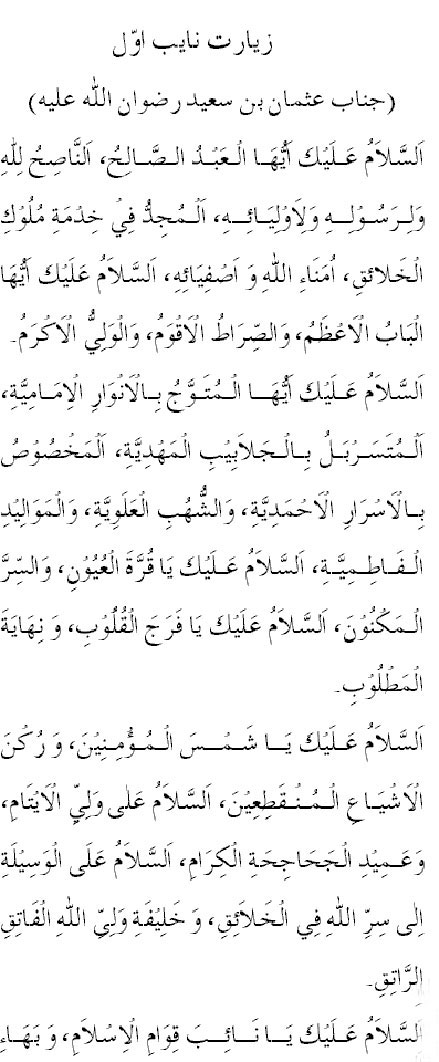 زیارت نایب اوّل
(جناب عثمان بن سعید رضوان الله علیه)
اَلسَّلاَمُ عَلَیْكَ اَیُّهَا الْعَبْدُ الصَّالِحُ، اَلنَّاصِحُ لِلّٰهِ
وَلِرَسُوْلِهِ وَلِاَوْلِیَائِهِ، اَلْمُجِدُّ فِیْ خِدْمَةِ مُلُوْكِ
الْخَلائِقِ، اُمَنَاءِ اللهِ وَ اَصْفِیَائِهِ، اَلسَّلاَمُ عَلَیْكَ اَیُّهَا
الْبَابُ الْاَعْظَمُ، وَالصِّرَاطُ الْاَقْوَمُ، وَالْوَلِیُّ الْاَكْرَمُ۔
اَلسَّلاَمُ عَلَیْكَ اَیُّهَا الْمُتَوَّجُ بِالْاَنْوَارِ الْاِمَامِیَّةِ،
اَلْمُتَسَرْبَلُ بِالْجَلاَبِیْبِ الْمَهْدِیَّةِ، اَلْمَخْصُوْصُ
بِالْاَسْرَارِ الْاَحْمَدِیَّةِ، وَالشُّهُبِ الْعَلَوِیَّةِ، وَالْمَوَالِیْدِ
الْفَاطِمِیَّةِ، اَلسَّلاَمُ عَلَیْكَ یَا قُرَّةَ الْعُیُوْنِ، وَالسِّرَّ
الْمَكْنُوْنَ، اَلسَّلاَمُ عَلَیْكَ یَا فَرَجَ الْقُلُوْبِ، وَ نِهَایَةَ
الْمَطْلُوْبِ۔
اَلسَّلاَمُ عَلَیْكَ یَا شَمْسَ الْمُؤْمِنِیْنَ، وَ رُكْنَ
الْاَشْیَاعِ الْمُنْقَطِعِیْنَ، اَلسَّلاَمُ عَلٰی وَلِیِّ الْاَیْتَامِ،
وَ عَمِیْدِ الْجَحَاجِحَةِ الْكِرَامِ، اَلسَّلاَمُ عَلَی الْوَسِیْلَةِ
اِلٰی سِرِّ اللهِ فِی الْخَلاَئِقِ، وَ خَلِیْفَةِ وَلِیِّ اللهِ الْفَاتِقِ
الرَّاتِقِ۔
اَلسَّلاَمُ عَلَیْكَ یَا نَائِبَ قِوَامِ الْاِسْلاَمِ، وَ بَهَاءِ